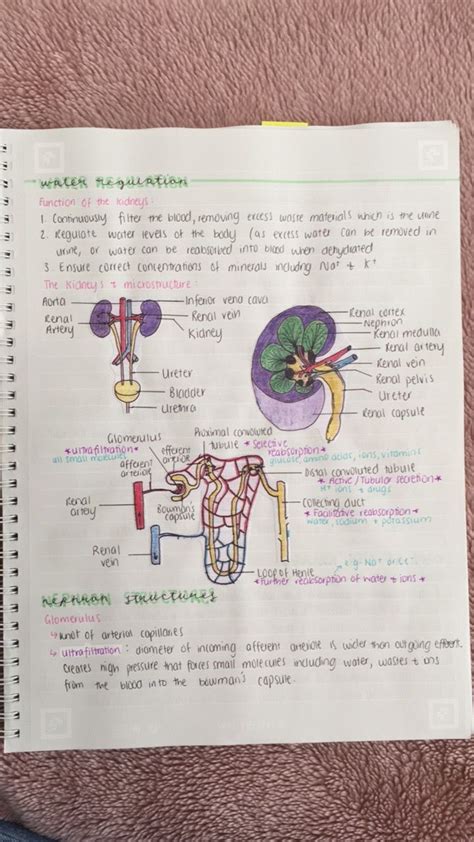 water regulation
Function of the kidneys:
1. Continuously filter the blood, removing excess waste materials which is the urine
2. Regulate water levels of the body (as excess water can be removed in
urine, or water can be reabsorbed into blood when dehydrated
3. Ensure correct concentrations of minerals including Na+ + K+
The Kidney's + microstructure:
Aorta
Renal Artery
Inferior vena cava
Renal vein
Kidney
Ureter
Bladder
Urethra
Renal cortex
Nephron
Renal medulla
Renal artery
Renal vein
Renal pelvis
Ureter
Renal capsule
Glomerulus
*ultrafiltration*
all small molecules
afferent
arteriole
efferent
arteriole
Proximal convoluted
tubule *Selective
reabsorption*
glucose, amino acids, ions, vitamins
Distal convoluted tubule
*Active/Tubular secretion*
H+ ions + drugs
Collecting duct
*Facilitative reabsorption*
water, sodium + potassium
Renal
artery
Bowman's
capsule
Renal
vein
Loop of Henle
e.g. Na+ or
*further reabsorption of water + ions*
nephron structures
Glomerulus
↳ knot of arterial capillaries
↳ ultrafiltration: diameter of incoming afferent arteriole is wider then outgoing efferent.
Creates high pressure that forces small molecules including water, wastes + ions
from the blood into the bowman's capsule.